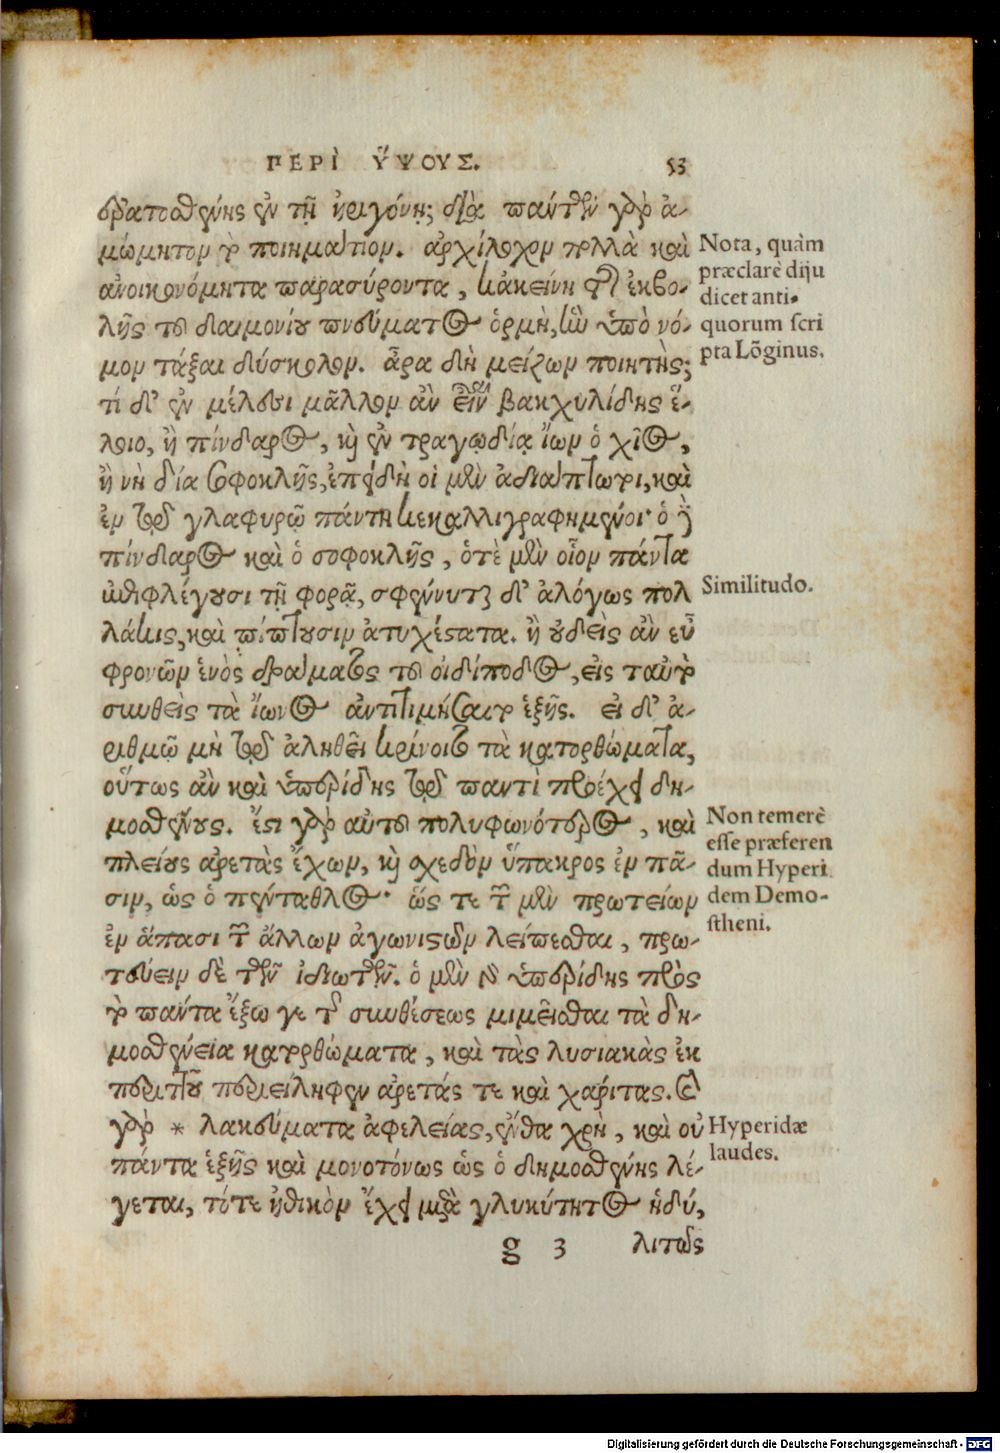 ΠΕΡΙ ὝΨΟΥΣ. 53
ἐρατοσθένης ἐν τῇ ἠριγόνῃ; διὰ πάντων γὰρ ἀ-
μώμητον τὸ ποιημάτιον. ἀρχίλοχον πολλὰ καὶ
ἀνοικονόμητα παρασύροντα, κἀκείνη τῇ ἐκβο-
λῆς τοῦ δαιμονίου πνεύματος ὁρμῇ, ἣν ὑπὸ νό-
μον τάξαι δύσκολον. ἆρα δὴ μείζων ποιητής;
τί δ' ἐν μέλεσι μᾶλλον ἂν εἶναι βακχυλίδης ἕ-
λοιο, ἢ πίνδαρος, καὶ ἐν τραγῳδίᾳ ἴων ὁ χῖος,
ἢ νὴ δία σοφοκλῆς, ἐπειδὴ οἱ μὲν ἀδιάπτωτοι, καὶ
ἐν τῷ γλαφυρῷ πάντη κεκαλλιγραφημένοι· ὁ δὲ
πίνδαρος καὶ ὁ σοφοκλῆς, ὁτὲ μὲν οἷον πάντα
ἐπιφλέγουσι τῇ φορᾷ, σβέννυται δ' ἀλόγως πολ
λάκις, καὶ πίπτουσιν ἀτυχέστατα. ἢ οὐδεὶς ἂν εὖ
φρονῶν ἑνὸς δράματος τοῦ οἰδίποδος, εἰς ταὐτὸ
συνθεὶς τὰ ἴωνος ἀντιτιμήσαιτο ἑξῆς. εἰ δ' ἀ-
ριθμῷ μὴ τῷ ἀληθεῖ κρίνοιτο τὰ κατορθώματα,
οὕτως ἂν καὶ ὑπερίδης τῷ παντὶ προέχει δη-
μοσθένους. ἔστι γὰρ αὐτοῦ πολυφωνότερος, καὶ
πλείους ἀρετὰς ἔχων, καὶ σχεδὸν ὕπακρος ἐν πᾶ-
σιν, ὡς ὁ πένταθλος· ὥς τε τῶν μὲν πρωτείων
ἐν ἅπασι τῶν ἄλλων ἀγωνιστῶν λείπεσθαι, πρω-
τεύειν δὲ τῶν ἰδιωτῶν. ὁ μὲν γὰρ ὑπερίδης πρὸς
τὸ πάντα ἔξω γε τῆς συνθέσεως μιμεῖσθαι τὰ δη-
μοσθένεια κατορθώματα, καὶ τὰς λυσιακὰς ἐκ
περιττοῦ περιείληφεν ἀρετάς τε καὶ χάριτας. καὶ
γὰρ * λακεύματα ἀφελείας, ἔνθα χρὴ, καὶ οὐ
πάντα ἑξῆς καὶ μονοτόνως ὡς ὁ δημοσθένης λέ-
γεται, τότε ἠθικὸν ἔχει μετὰ γλυκύτητος ἡδύ,
g 3 λιτῶς
Nota, quàm
præclarè diju
dicet anti-
quorum scri
pta Lõginus.
Similitudo.
Non temerè
esse præferen
dum Hyperi
dem Demo-
stheni.
Hyperidæ
laudes.
Digitalisierung gefördert durch die Deutsche Forschungsgemeinschaft - DFG